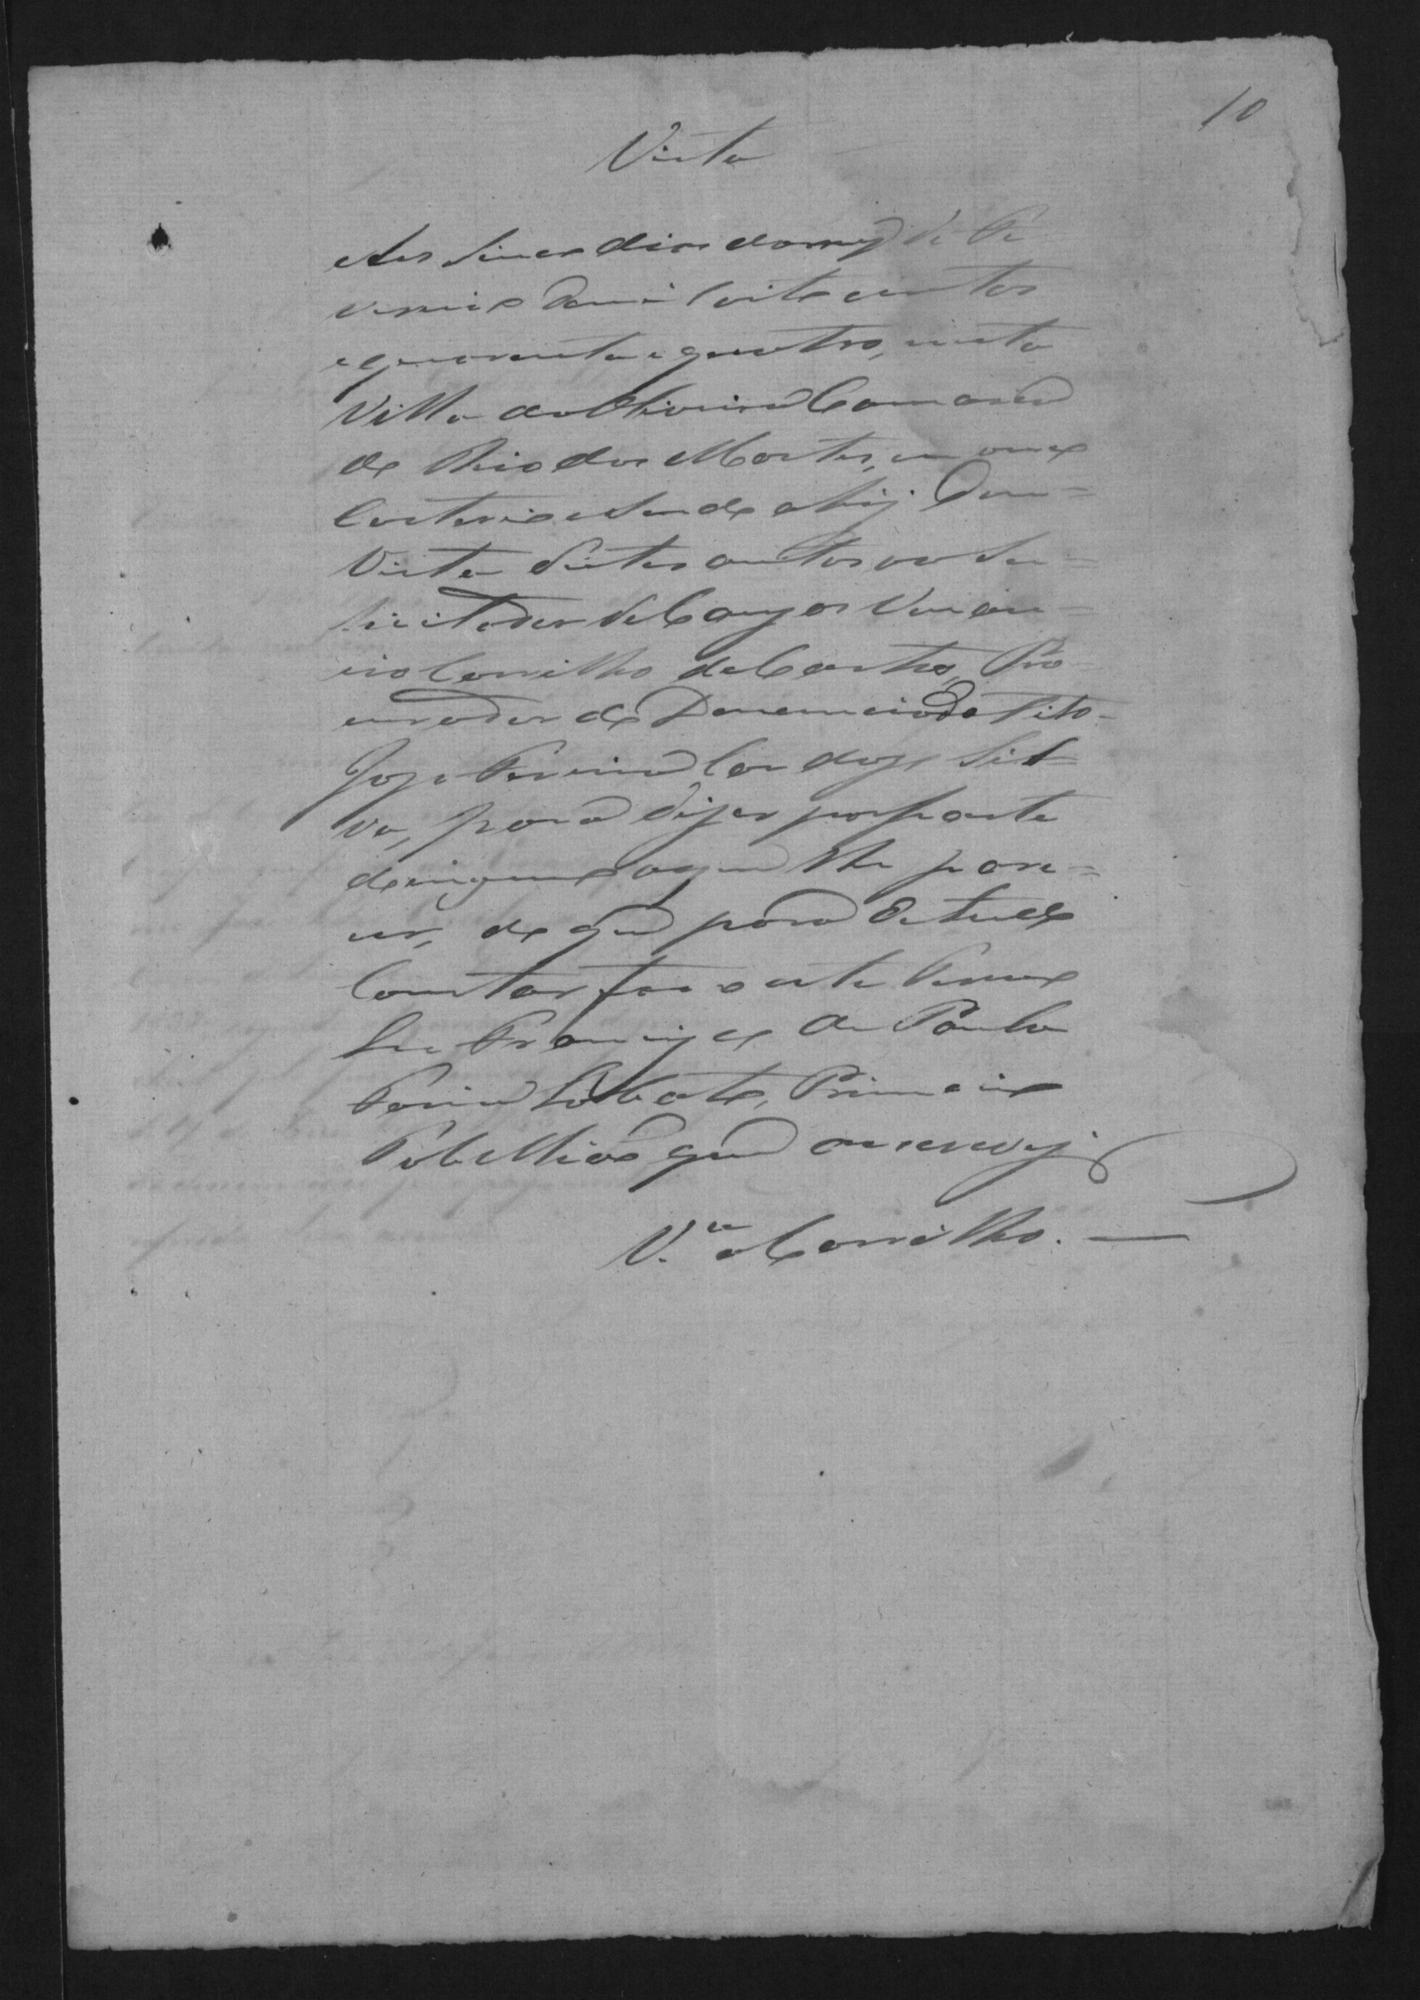 10
Vista
Aos Sinco dias do mez de Fe
vereiro de mil oito centos
e quarenta e quatro, nesta
Villa da Oliveira Comarca
do Rio das Mortes, em meu
Cartorio e sendo ahi, Dou
Vista destes autos ao So=
licitador de Cauzas Venan=
cio Carrilho de Castro, Pro=
curador do Denunciado Tito
Joze Ferreira Cardozo Sil=
va, para dizer por parte
do mesmo o que lhe pare=
cer, do que para de tudo
Constar faço este Termo
Eu Francisco de Paula
Faria Lobato, Primeiro
Tabellião que o escrevi
V.ta a Carrilho. —